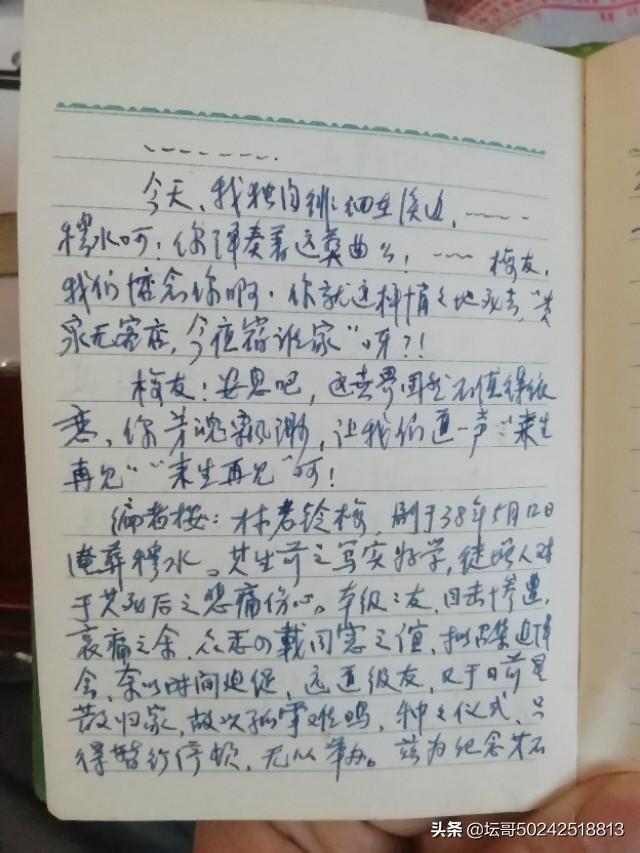 今天,我独自徘徊在溪边,
穆水呵!你弹奏着这葬曲么! 梅友,
我们惦念你啊.你就这样悄々地死去,"黄
泉无客店,今夜宿谁家"呀?!
梅友:安息吧,这世界固然不值得依
恋,你芳魂,让我们道一声"来生
再见""来生再见"呵!
编者按:林君铃梅 于38年5月12日
淹葬穆水。其生前之写实好学,徒增人对
于其死后之悲痛伤心。本级之友,惨遭,
哀痛之余,众悉以载同窗之值,拟召集追悼
会,奈以时间迫促,远道级友,又于日前星
散归家,故以孤掌难鸣,种々仪式,只
得暂行停顿,无以举办。兹为纪念
头条 @坛哥50242518813